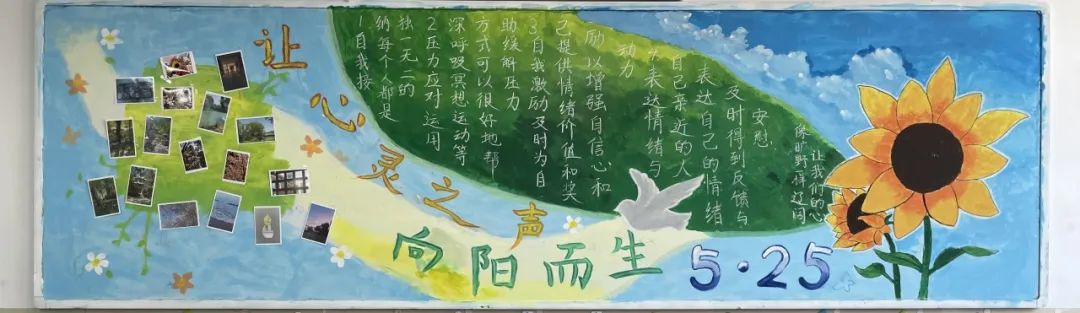 让心灵之声
1自我接
纳每个人都是
独一无二的
2压力应对运用
深呼吸冥想运动等
方式可以很好地帮
助缓解压力
3自我激励及时为自
己提供情绪价值和奖
励以增强自信心和
动力
4表达情绪与
自己亲近的人
表达自己的情绪
及时得到反馈与
安慰
让我们的心
像旷野一样辽阔
向阳而生
5·25